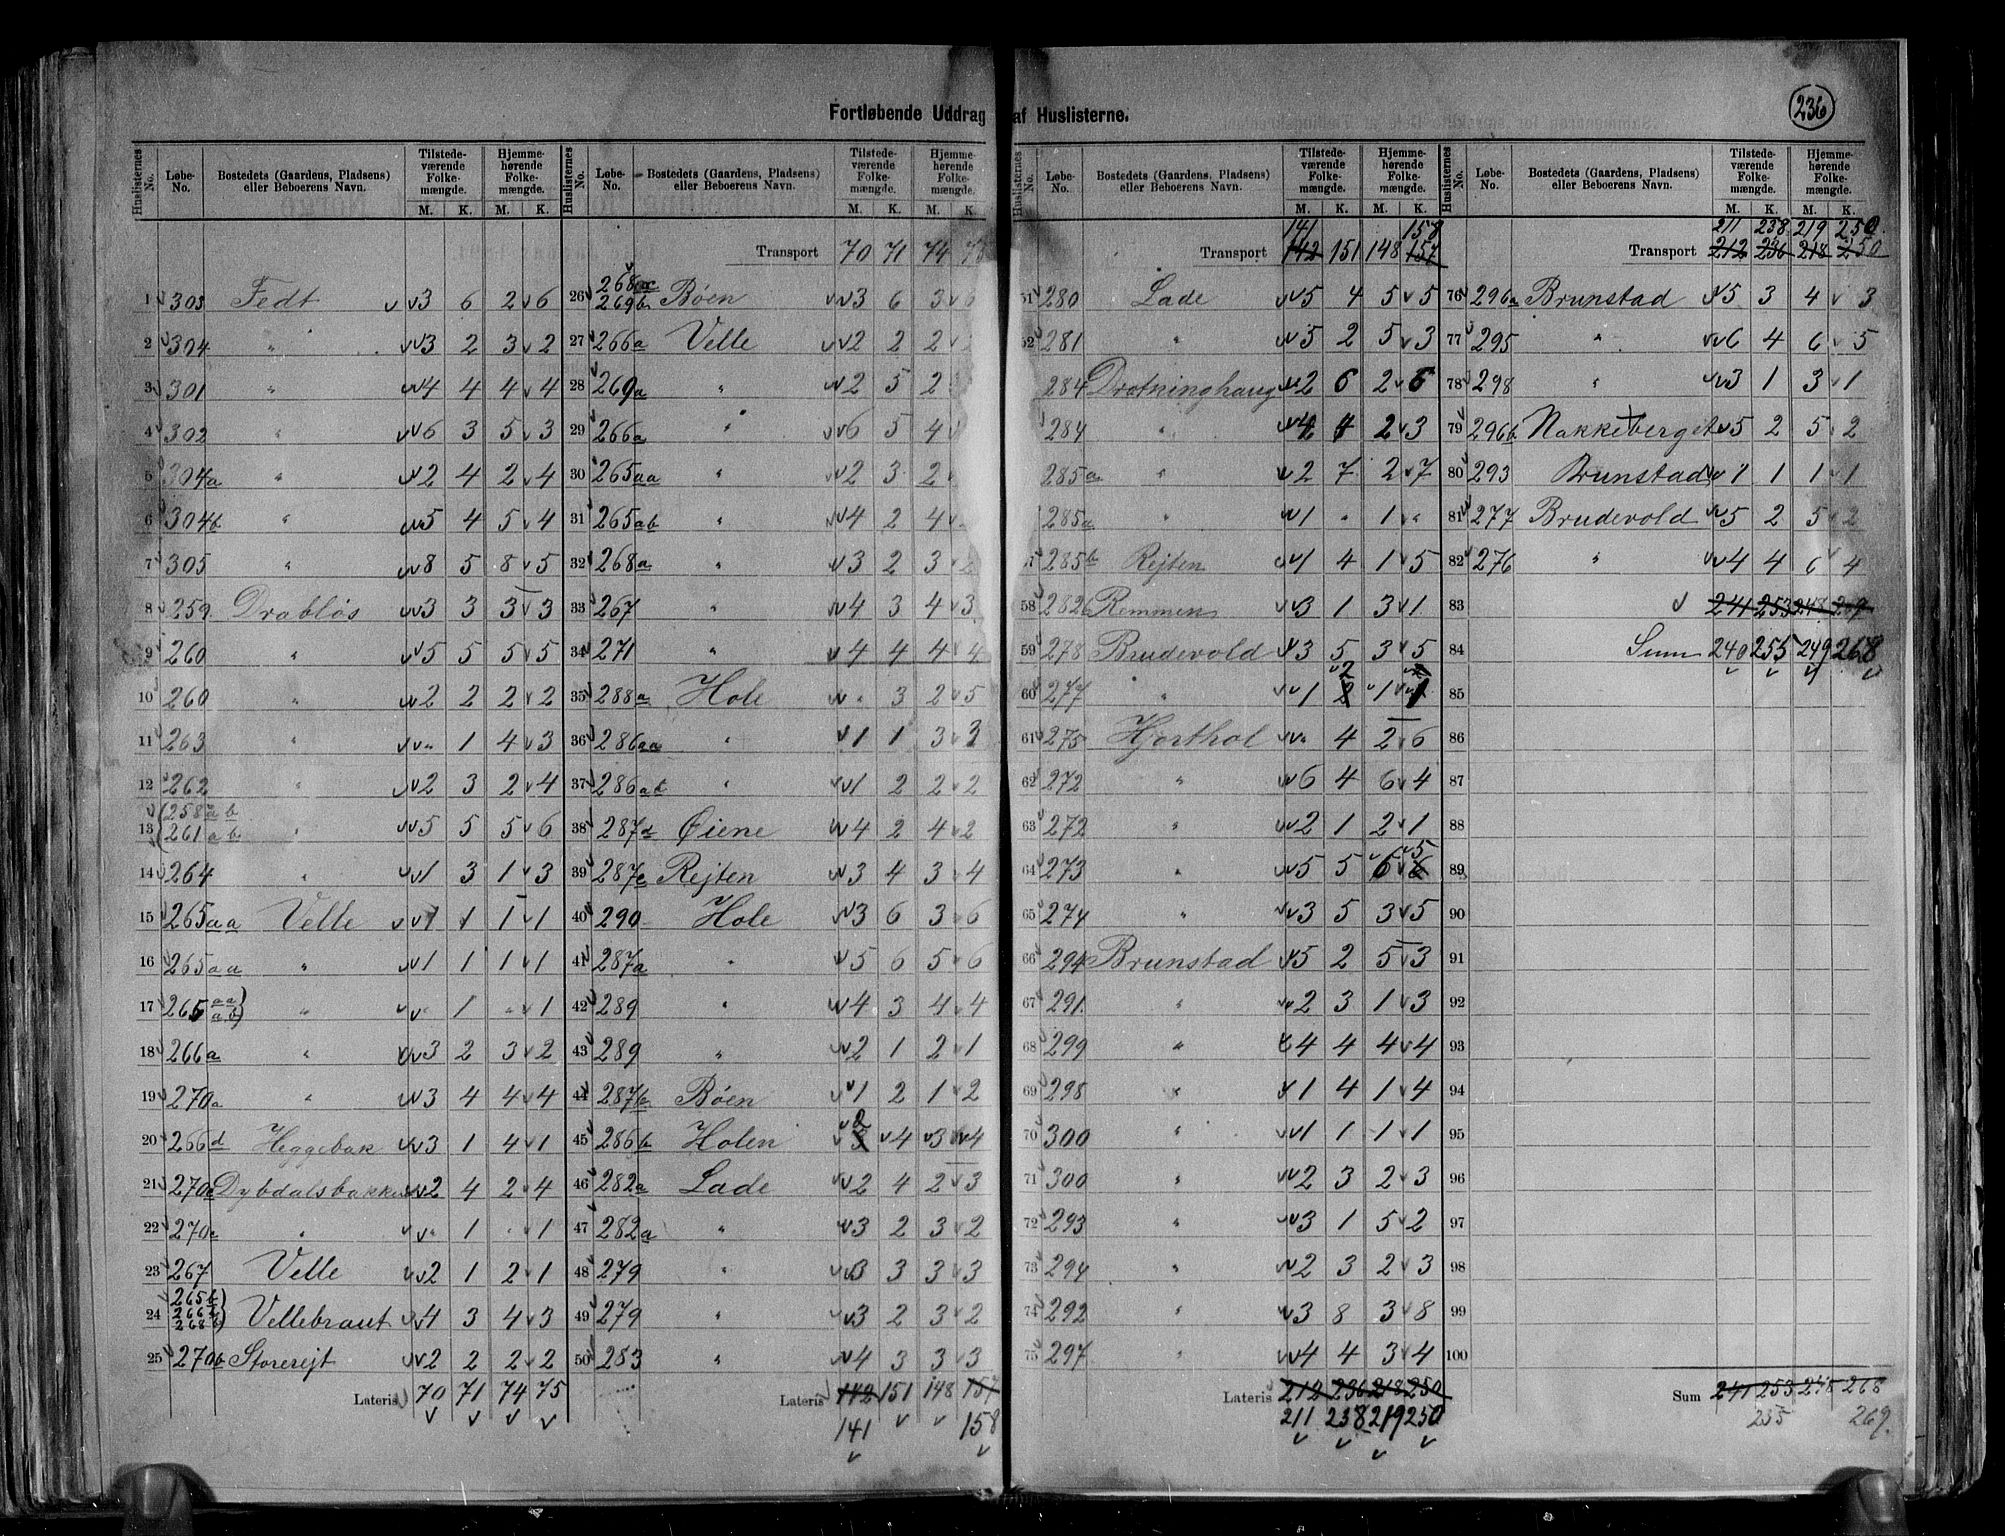 236
Fortløbende Uddrag af Huslisterne.
Huslisternes No. Løbe-No. Bostedets (Gaardens, Pladsens) eller Beboerens Navn. Tilstede-værende Folke-mængde. M. K. Hjemme-hørende Folke-mængde. M. K.
1 303 Fedt 3 6 2 6
2 304 " 3 2 3 2
3 301 " 4 4 4 4
4 302 " 6 3 5 3
5 304a " 2 4 2 4
6 304b " 5 4 5 4
7 305 " 8 5 8 5
8 259 Drabløs 3 3 3 3
9 260 " 5 5 5 5
10 260 " 2 2 2 2
11 263 " " 1 4 3
12 262 " 2 3 2 4
13 (258ab 261ab " 5 5 5 6
14 264 " 1 3 1 3
15 265aa Velle 1 1 1 1
16 265aa " 1 1 1 1
17 265 aa ab) " " 1 " 1
18 266a " 3 2 3 2
19 270a " 3 4 4 4
20 266d Heggebak 3 1 4 1
21 270c Dybdalsbakke 2 4 2 4
22 270c " " 1 " 1
23 267 Velle 2 1 2 1
24 265b 266b 268b) Vellebraut 4 3 4 3
25 270b Storerejt 2 2 2 2
Lateris 70 71 74 75
Transport 70 71 74
26 268 269b Bøen 3 6 3 6
27 266a Velle 2 2 2
28 269a " 2 5 2
29 266a " 6 5 4
30 265aa " 2 3 2
31 265ab " 4 2 4
32 268a " 3 2 3 2
33 267 " 4 3 4 3
34 271 " 4 4 4 4
35 288a Hole " 3 2 5
36 286aa " 1 1 3 3
37 286ab " 1 2 2 2
38 287d Øiene 4 2 4 2
39 287c Rejten 3 4 3 4
40 290 Hole 3 6 3 6
41 287a " 5 6 5 6
42 289 " 4 3 4 4
43 289 " 2 1 2 1
44 287b Bøen 1 2 1 2
45 286b Holen 2 4 3 4
46 282a Lade 2 4 2 3
47 282a " 3 2 3 2
48 279 " 3 3 3 3
49 279 " 3 2 3 2
50 283 " 4 3 3 3
Lateris 142 151 148 157
141 158
141 158
Transport 142 151 148 157
51 280 Lade 5 4 5 5
52 281 " 5 2 5 3
284 Drotninghaug 2 6 2 6
284 " 4 4 2 3
285a " 2 7 2 7
285a " 1 " 1 "
285b Rejten 1 4 1 5
58 282a Remmen 3 1 3 1
59 278 Brudevold 3 5 3 5
60 277 " 1 2 1
61 275 Hjorthol " 4 2 6
62 272 " 6 4 6 4
63 272 " 2 1 2 1
64 273 " 5 5 6 5
65 274 " 3 5 3 5
66 294 Brunstad 5 2 5 3
67 291 " 2 3 1 3
68 299 " 4 4 4 4
69 298 " 1 4 1 4
70 300 " 1 1 1 1
71 300 " 2 3 2 3
72 293 " 3 1 5 2
73 294 " 2 3 2 3
74 292 " 3 8 3 8
75 297 " 4 4 3 4
Lateris 212 236 218 250
211 238 219 250
211 238 219 250
Transport 212 236 218 250
76 296a Brunstad 5 3 4 3
77 295 " 6 4 6 5
78 298 " 3 1 3 1
79 296b Nakkeberget 5 2 5 2
80 293 Brunstad 1 1 1 1
81 277 Brudevold 5 2 5 2
82 276 " 4 4 6 4
83 241 253 248 269
84 Sum 240 255 249 268
85
86
87
88
89
90
91
92
93
94
95
96
97
98
99
100
Sum 241 253 248 268
255 269